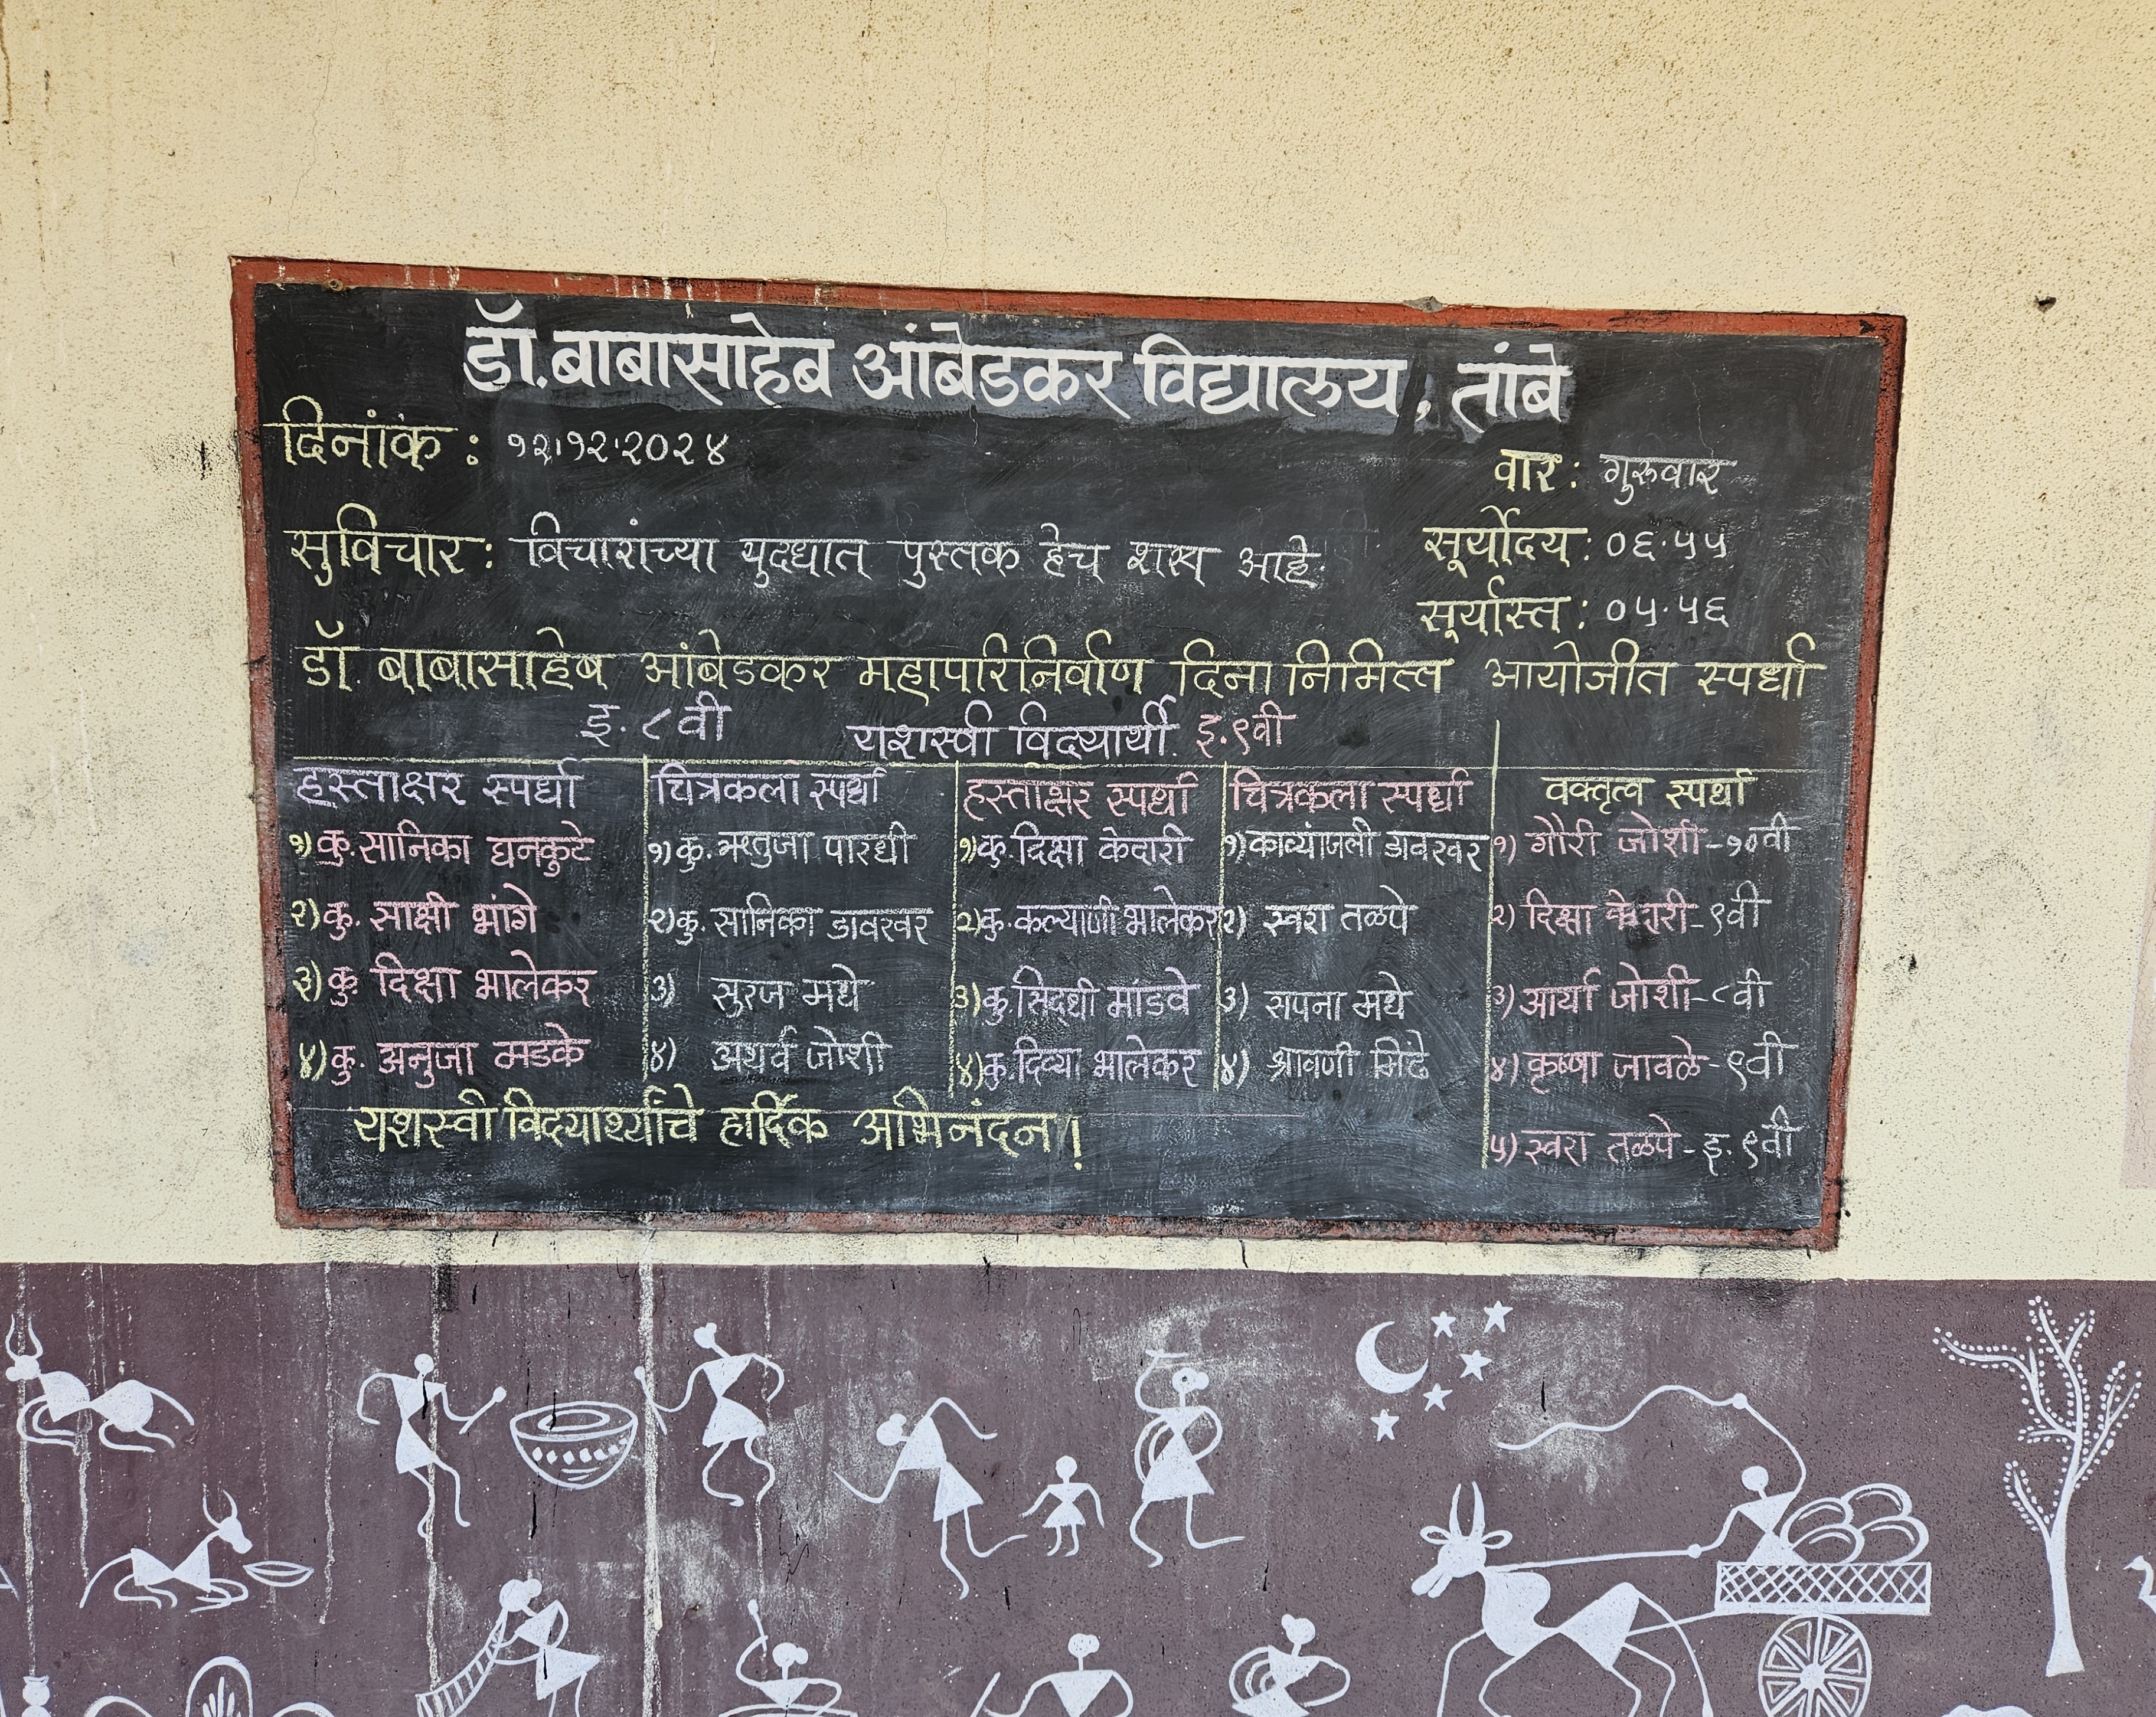 डॉ. बाबासाहेब आंबेडकर विद्यालय, तांबे
दिनांक : १२।१२।२०२४
वार : गुरुवार
सुविचार : विचारांच्या युदधात पुस्तक हेच शस्त्र आहे.
सूर्योदय : ०६.५५
सूर्यास्त : ०५.५६
डॉ. बाबासाहेब आंबेडकर महापरिनिर्वाण दिना निमित्त आयोजीत स्पर्धा
इ. ८वी यशस्वी विदयार्थी. इ.९वी
हस्ताक्षर स्पर्धा
१) कु. सानिका घनकुटे
२) कु. साक्षी भांगे
३) कु. दिक्षा भालेकर
४) कु. अनुजा मडके
चित्रकला स्पर्धा
१) कु. ऋतुजा पारधी
२) कु. सानिका डावखर
३) सुरज मधे
४) अथर्व जोशी
हस्ताक्षर स्पर्धा
१) कु. दिक्षा केदारी
२) कु. कल्याणी भालेकर
३) कु. सिदधी मांडवे
४) कु. दिव्या भालेकर
चित्रकला स्पर्धा
१) काव्यांजली डावखर
२) स्वरा तळपे
३) सपना मधे
४) श्रावणी मिढे
वक्तृत्व स्पर्धा
१) गौरी जोशी - १०वी
२) दिक्षा केदारी - ९वी
३) आर्या जोशी - ८वी
४) कृष्णा जावळे - ९वी
५) स्वरा तळपे - इ. ९वी
यशस्वी विदयार्थ्यांचे हार्दिक अभिनंदन !